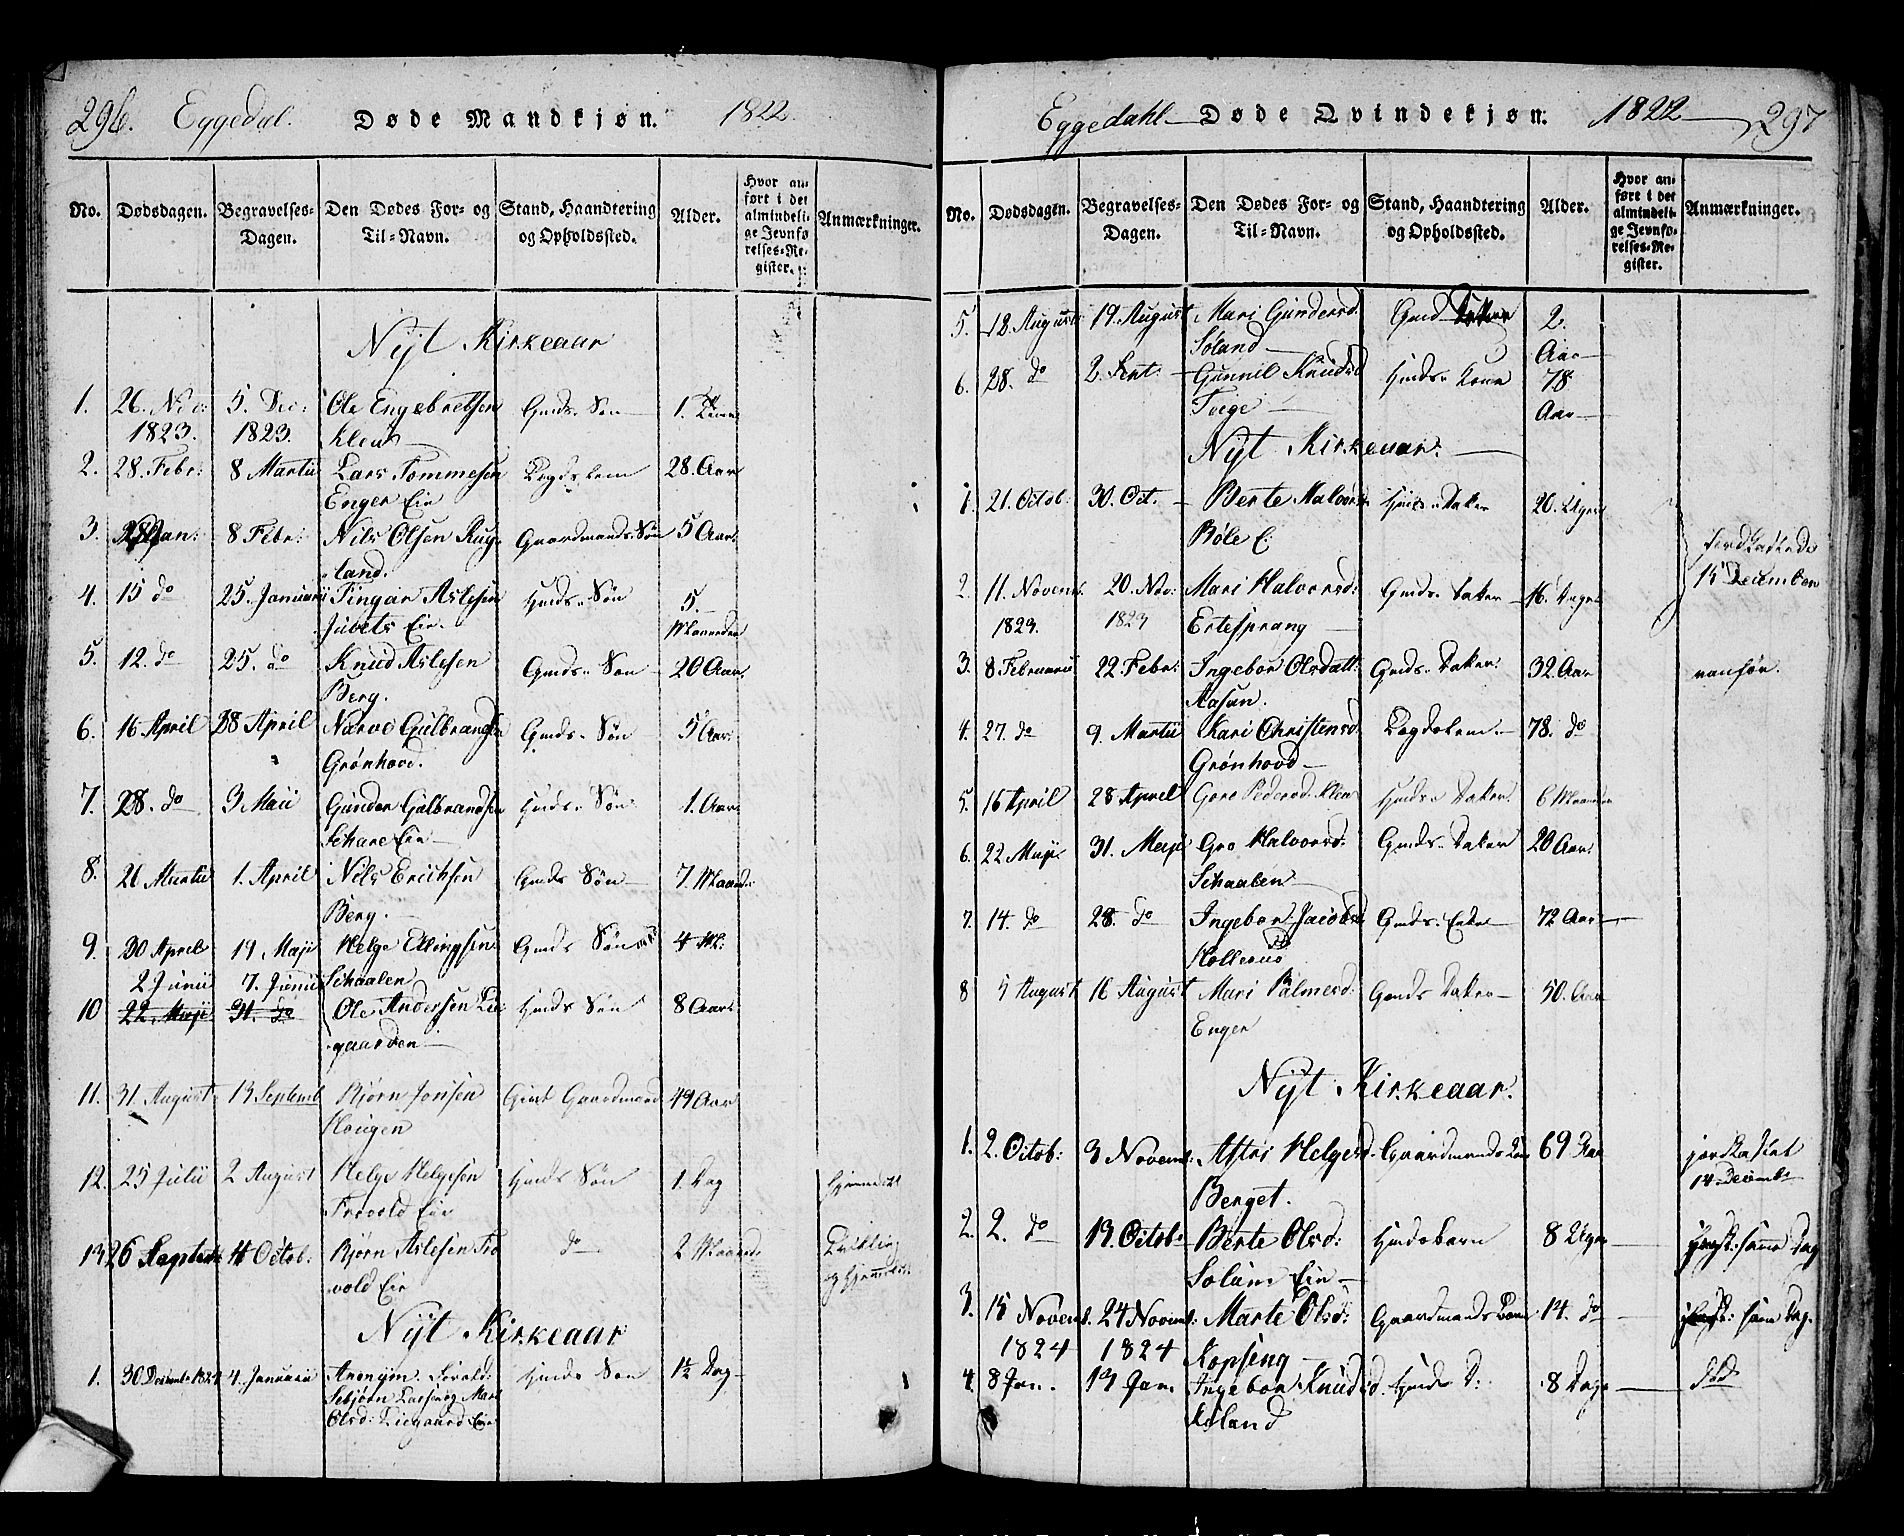 296. Eggedal. Døde Mandkjøn. 1822
No. Dødsdagen. Begravelses-Dagen. Den Dødes For- og Til-Navn. Stand, Haandtering og Opholdssted. Alder. Hvor anført i det almindelige Jevnførelses-Register. Anmærkninger.
Nyt Kirkeaar
1. 26. Nov: 5. Dec: Ole Engebretsen Gmds. Søn 1.
1823. 1823. Klew
2. 28. Febr: 8 Martii Lars Tommesen Lægdslem 28. Aar
Enger Eie
3. Jan: 8 Febr: Nils Olsen Rug- Gaardmands Søn 5 Aar
land.
4. 15 do 25. Januarii Tingar Aslesen Hmds. Søn 5.
Juvets Eie. Maaneder
5. 12. do 25. do Knud Aslesen Gmds. Søn 20 Aar
Berg.
6. 16 April 28 April Narve Gulbrandsen Gmds. Søn 5 Aar
Grønhovd.
7. 28. do 3 Maii Gunder Gulbrandsen Hmds. Søn 1. Aar
Schare Eie
8. 21 Martii 1. April Nils Erichsen Gmds Søn 7. Maaneder
Berg.
9. 30 April 19 Maji Helge Ellingsen Gmds Søn 4 M:
2 Junii 7. Junii Schaalen
10 22. Maji 31. do Ole Andersen Lie- Hmds Søn 8 Aar
gaarden
11. 31 August 13 Septemb Bjørn Jonsen Givt Gaardmand 49 Aar
Hougen
12. 25 Julii 2 August Helge Helgesen Hmds Søn 1. Dag Hjemmedøbt
Trovold Eie
13 26 Septemb 4 Octob: Bjørn Aslesen Tro- do 2 Maaneder Tvilling
vold Eie og Hjemmedøbt
Nyt Kirkeaar
1. 30 Decemb: 1824 4. Januarii Anonym. Foreld: Hmds Søn 1½ Dag
Sebjørn Larsen og Mari
Olsd: Liegaard Eie
Eggedahl Døde Qvindekjøn. 1822 297
No. Dødsdagen. Begravelses-Dagen. Den Dødes For- og Til-Navn. Stand, Haandtering og Opholdssted. Alder. Hvor anført i det almindelige Jevnførelses-Register. Anmærkninger.
5. 12. August 19. August Mari Gundersd. Gmd Datter 2.
Søland Aar
6. 28. do 2. Sept: Gunnil Knudsd Hmds. Kone 78
Teige Aar
Nyt Kirkeaar.
1. 21. Octob: 30. Oct. Berte Halvorsd Hmds. Datter 20. Uger
Bøle E: Jordkastede
2. 11. Novemb. 20. Nov: Mari Halvorsd: Gmds. Datter 16. Dage 15 December
1823. 1823 Ertesprang
3. 8 Februarii 22. Febr: Ingebor Olsdatt: Gmds. Datter 32. Aar vanfør.
Aasan.
4. 27. do 9. Martii Kari Christensd. Lægdslem 78. do
Grønhovd
5. 16 April 28 April Gore Pedersd. Klew Hmds. Datter 6 Maaneder
6. 22 Maji 31. Maji Gro Halvorsd: Gmds. Datter 20 Aar
Schaalen
7. 14. do 28. do Ingebor Jacobsd Gmds. Enke 72 Aar
Hollerud
8 5 August 16 August Mari Palmesd: Gmds Datter 50. Aar
Enger
Nyt Kirkeaar.
1. 2. Octob: 3 Novemb: Astri Helgesd. Gaardmands Kone 69 Aar jordkastet
Berget. 14 Decemb:
2. 2. do 13. Octob: Berte Olsd: Hmdsbarn 8 Uger samme Dag
Solum Eie
3. 15 Novemb. 24 Novemb: Marte Olsd: Gaardmands Kone 14. do samme Dag.
1824 1824 Kopseng
4. 8 Jan. 13 Jan. Ingebor Knudsd. Hmds D: 8 Dage
Røland